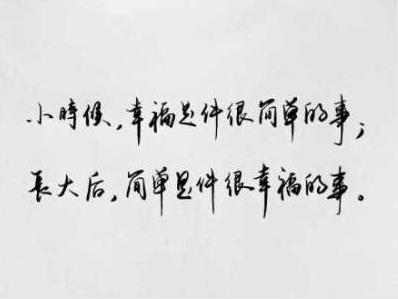 小時候，幸福是件很简单的事；
長大后，简單是件很幸福的事。